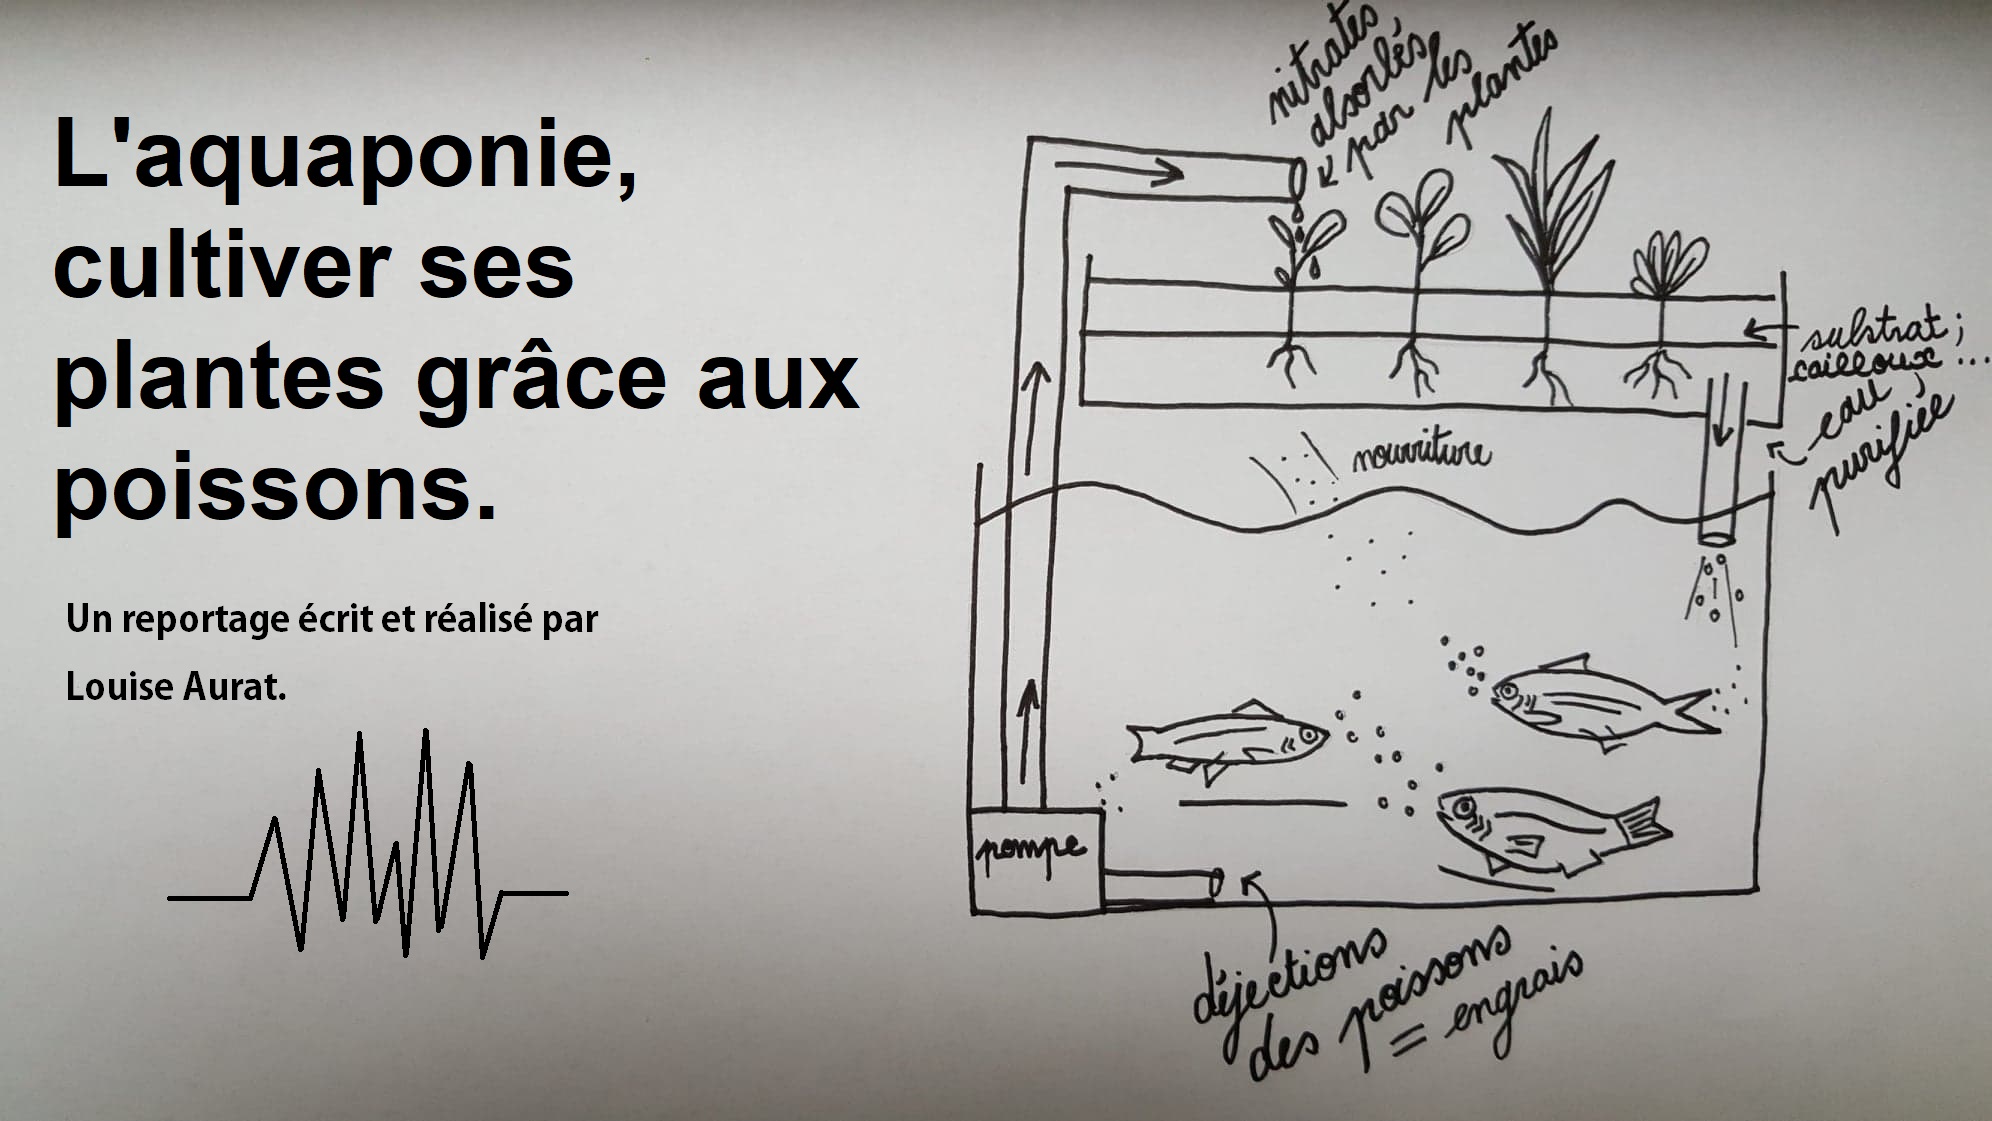 L'aquaponie,
cultiver ses
plantes grâce aux
poissons.
Un reportage écrit et réalisé par
Louise Aurat.
nitrates
absorbés
par les
plantes
substrat;
cailloux...
eau
purifiée
nourriture
pompe
déjections
des poissons
= engrais